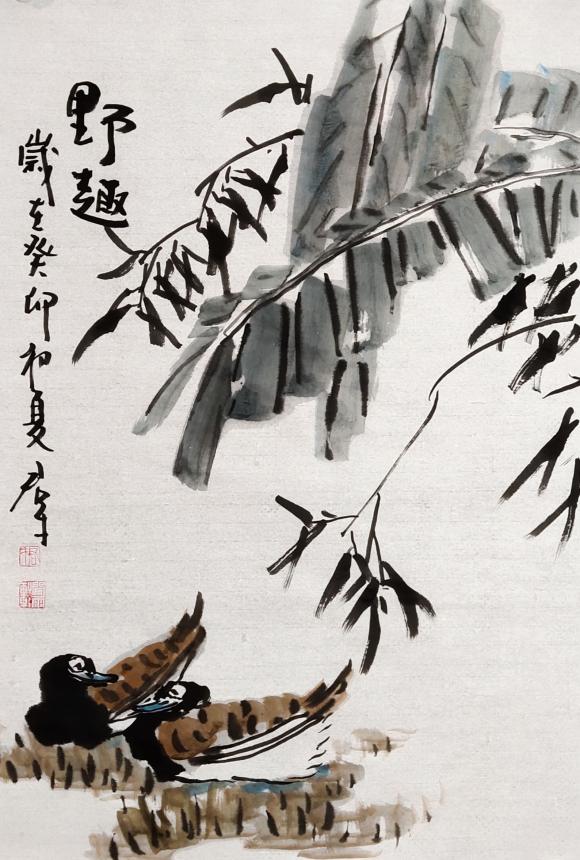 野趣
歲在癸卯初夏